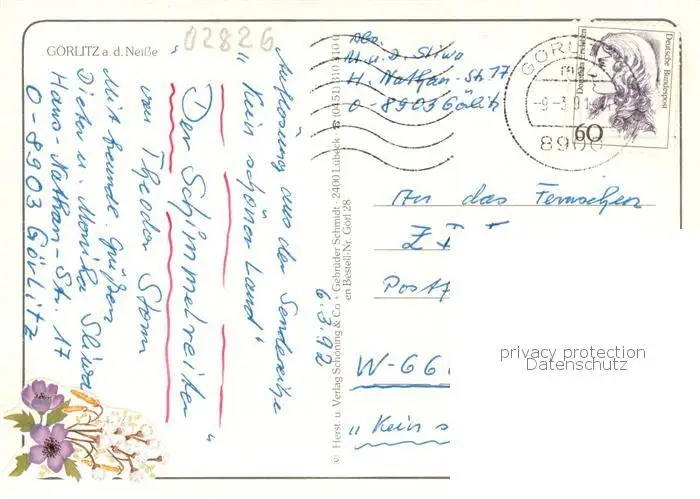 GÖRLITZ a. d. Neiße
02826
Auflösung aus der Sendereihe
„Kein schöner Land"
„Der Schimmelreiter"
von Theodor Storm
Mit freundl. Grüßen
Dieter u. Monika Sliwa
Hans-Nathan-Str. 17
O-8903 Görlitz
6.3.92
© Herst. u. Verlag Schöning & Co + Gebrüder Schmidt · 2400 Lübeck
en Bestell-Nr. Görl 28
Abs.
M. u. D. Sliwa
H. Nathan-Str. 17
O-8903 Görlitz
GÖRLI
-9-3
8900
Deutsche Bundespost
60
An das Fernsehen
ZDF
Postf
W-66
„Kein s
privacy protection
Datenschutz